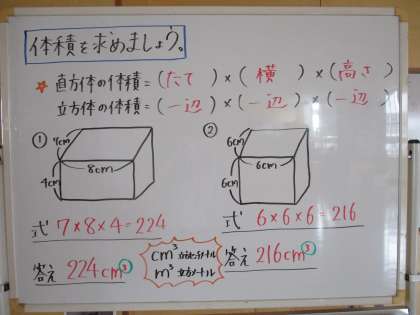 体積を求めましょう。
★直方体の体積=(たて)×(横)×(高さ)
立方体の体積=(一辺)×(一辺)×(一辺)
①
7cm
8cm
4cm
式 7×8×4=224
答え 224cm³
②
6cm
6cm
6cm
式 6×6×6=216
答え 216cm³
cm³ 立方センチメートル
m³ 立方メートル